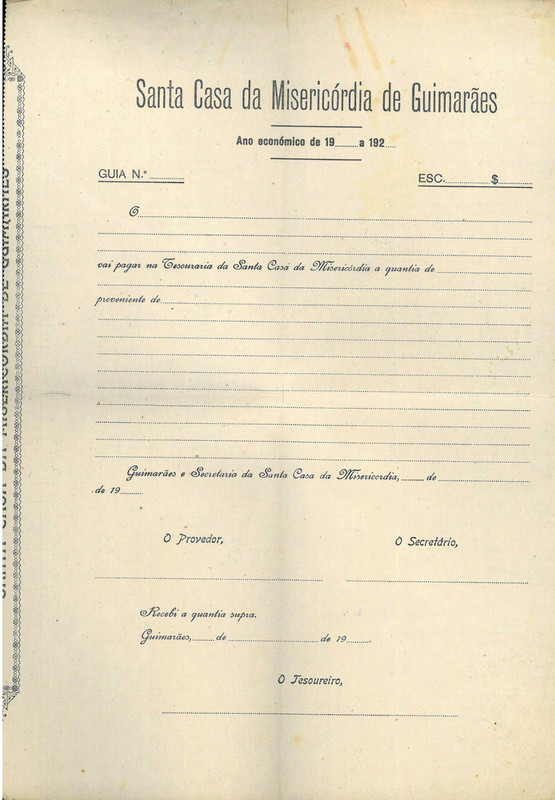 Santa Casa da Misericórdia de Guimarães
Ano económico de 19........ a 192....
GUIA N.º ............
ESC. ............ $ ............
O
vai pagar na Tesouraria da Santa Casa da Misericórdia a quantia de
proveniente de
Guimarães e Secretaria da Santa Casa da Misericordia, ........ de
de 19........
O Provedor,
O Secretário,
Recebi a quantia supra.
Guimarães, ........ de ........................ de 19........
O Tesoureiro,
SANTA CASA DA MISERICORDIA DE GUIMARÃES